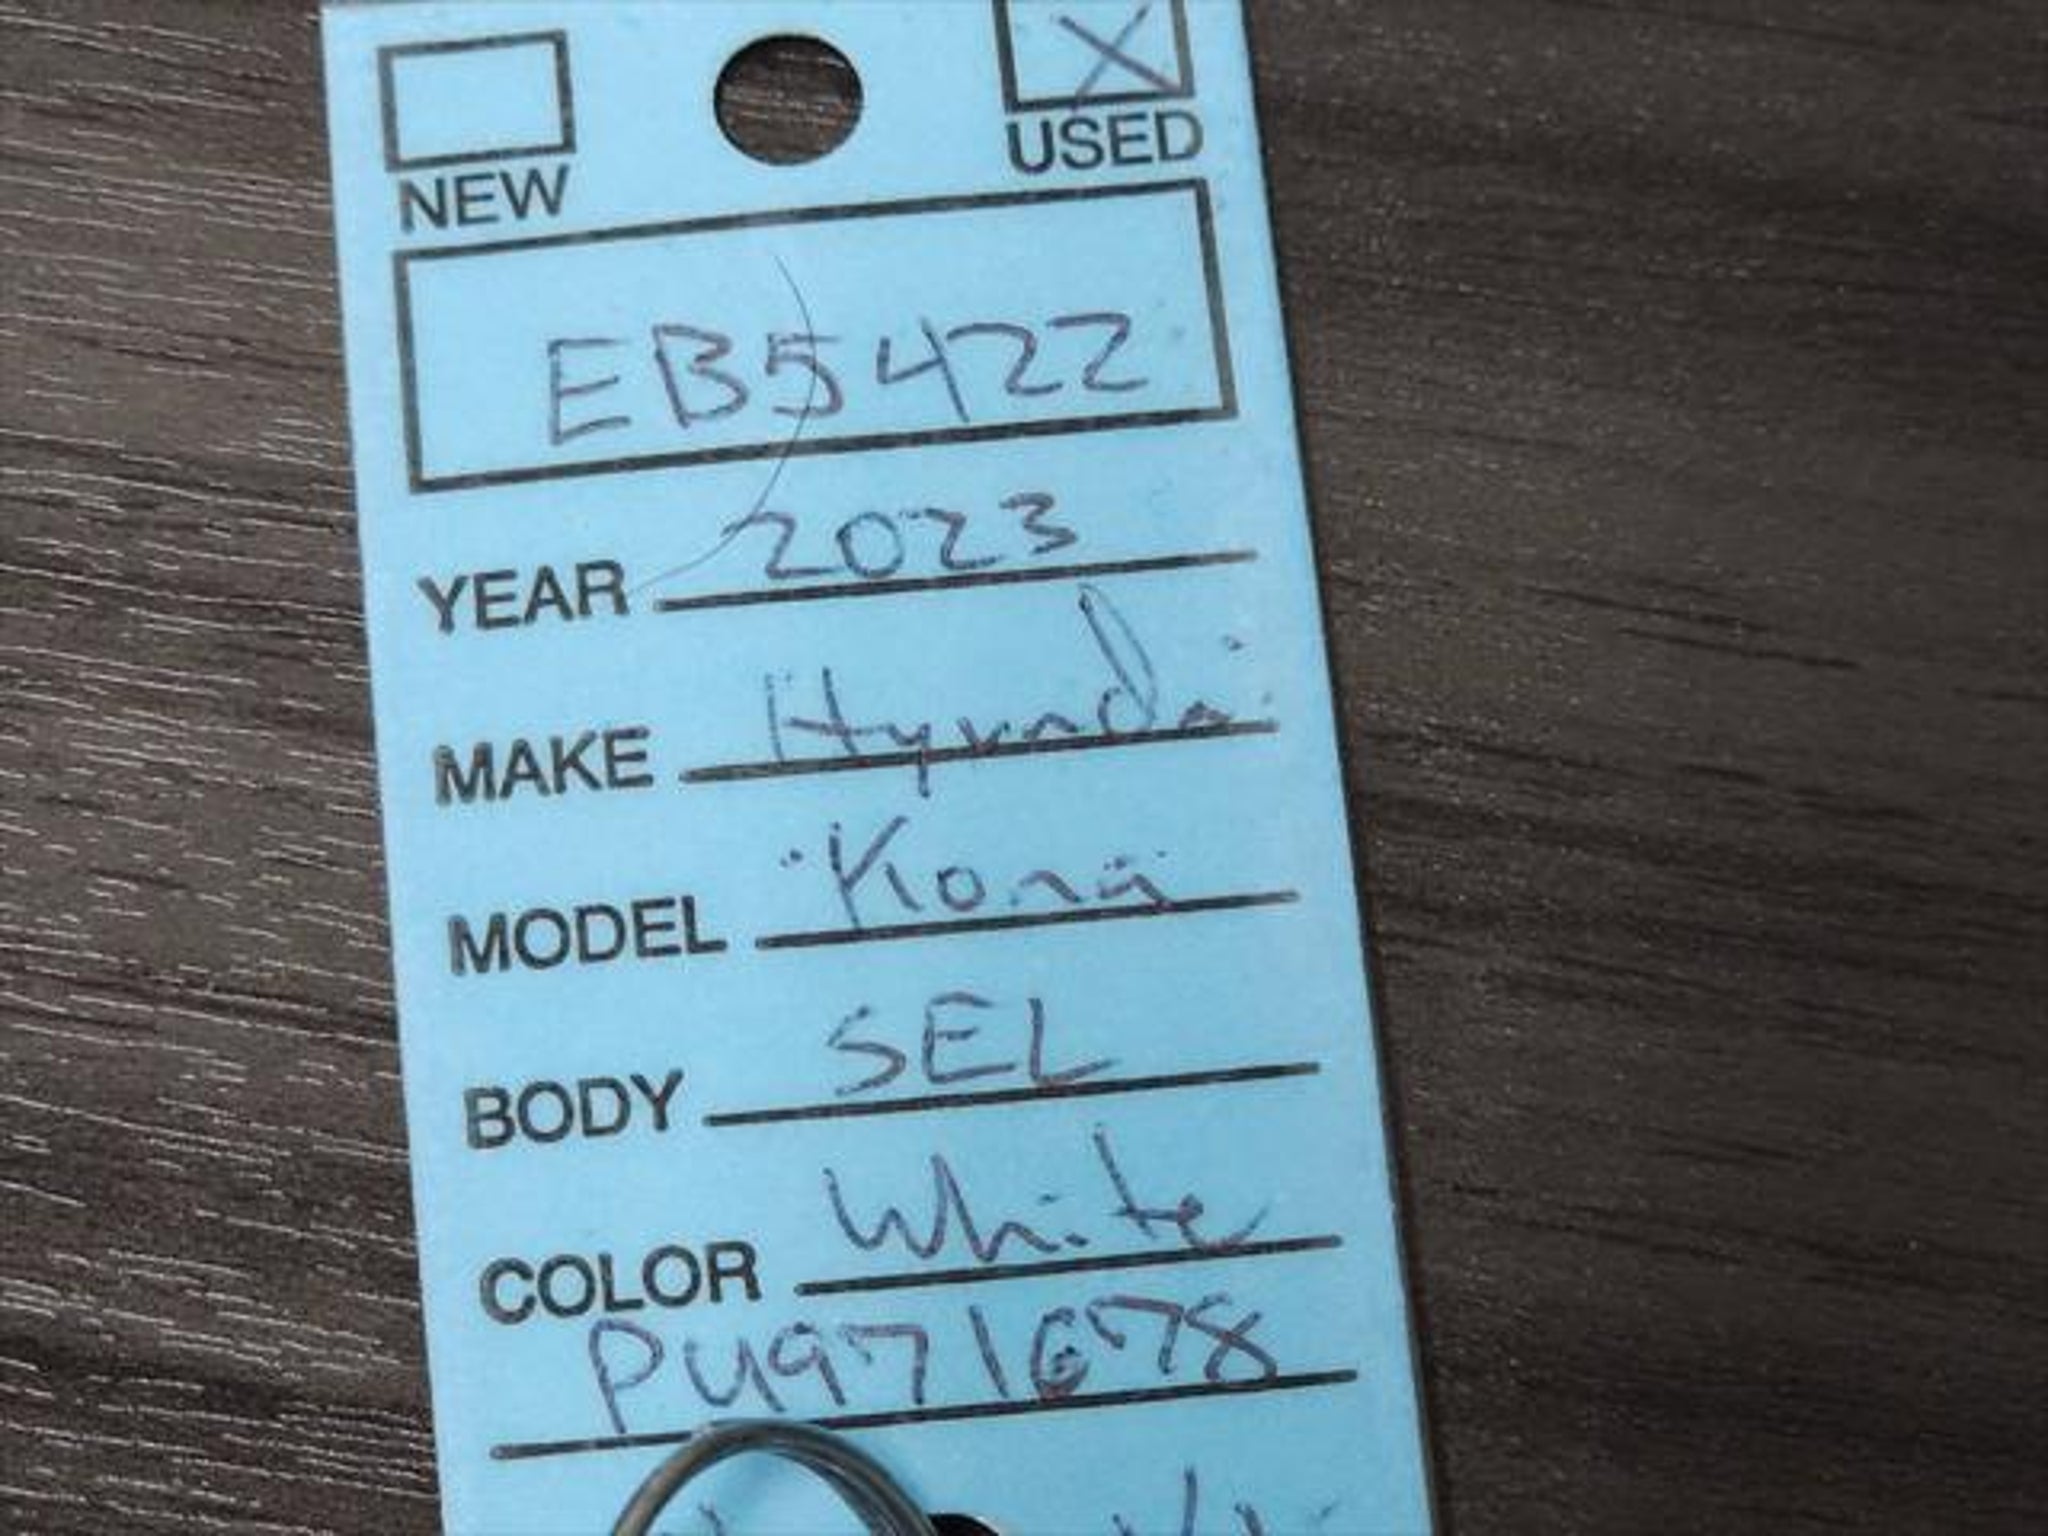 NEW USED
EB5422
YEAR 2023
MAKE Hyundai
MODEL Kona
BODY SEL
COLOR White
PU971678